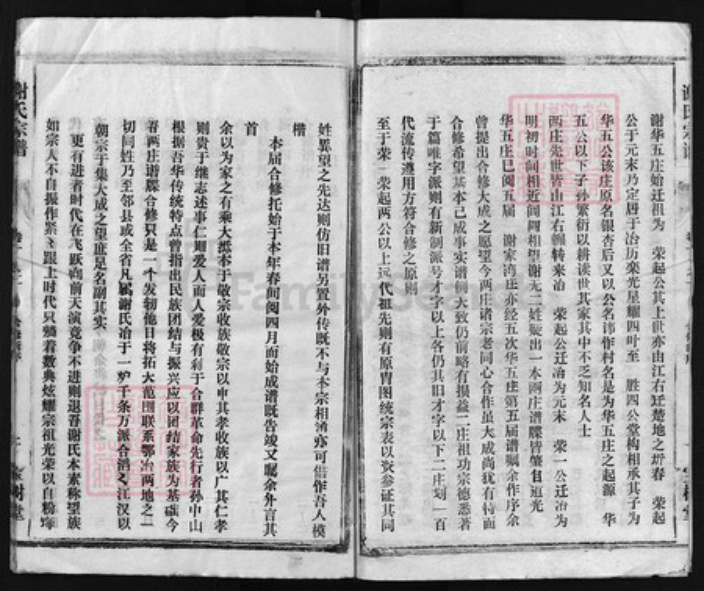 谢氏宗谱
谢华五庄始迁祖为 荣起公其上世亦由江右迁楚地之圻春 荣起
公于元末乃定居于冶历栾光星耀四叶至 胜四公堂构相承其子为
华五公该庄原名银杏后又以公名讳作村名是为华五庄之起源 华
五公以下子孙繁衍以耕读世其家其中不乏知名人士
两庄先世皆由江右辗转来冶 荣起公迁冶为元末 荣一公迁冶为
明初时间相近闾闬相望谢无二姓疑出一本两庄谱牒皆肇自道光
华五庄已阅五届 谢家湾庄亦经五次华五庄第五届谱嘱余作序余
曾提出合修大成之愿望今两庄诸宗老同心合作虽大成尚犹有待而
合修希望基本已成事实谱例大致仍前略有损益二庄祖功宗德悉著
于篇唯字派则有新制派号才字以上各仍其旧才字以下二庄划一百
代流传遵用方符合修之原则
至于荣一荣起两公以上远代祖先则有原胄图统宗表以资参证其同
树堂
谢氏宗谱
姓异望之先达则仿旧谱另置外传既不与本宗相淆亦可供作吾人模
楷
本届合修托始于本年春间阅四月而始成谱既告竣又嘱余弁言其
首
余以为家之有乘大抵本于敬宗收族敬宗以申其孝收族以广其仁孝
则贵于继志述事仁则爱人而人爱极有利于合群革命先行者孙中山
根据吾华传统特点曾指出民族团结与振兴应以团结家族为基础今
春两庄谱牒合修只是一个发轫他日将拓大范围联系鄂冶两地之一
切同姓乃至邻县或全省凡属谢氏冶于一炉千条万派合滔江汉以
朝宗于集大成之望庶足名副其实
更有进者时代在飞跃向前天演竞争不进则退吾谢氏本素称望族
如宗人不自振作紧紧跟上时代只躺着数典炫耀宗祖光荣以自粉饰
树堂